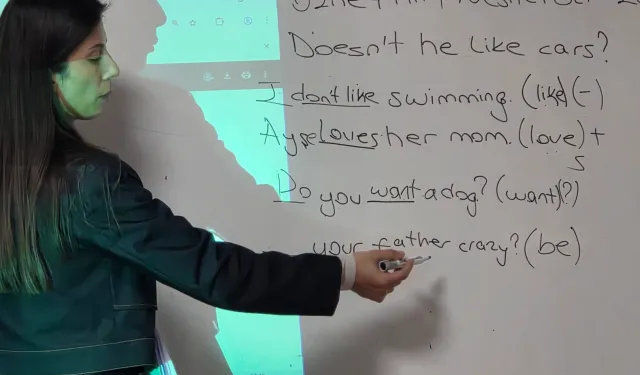 Doesn't he like cars?
I don't like swimming. (like) (-)
Ayşe Loves her mom. (love) +
S
Do you want a dog? (want) (?)
your father crazy? (be)